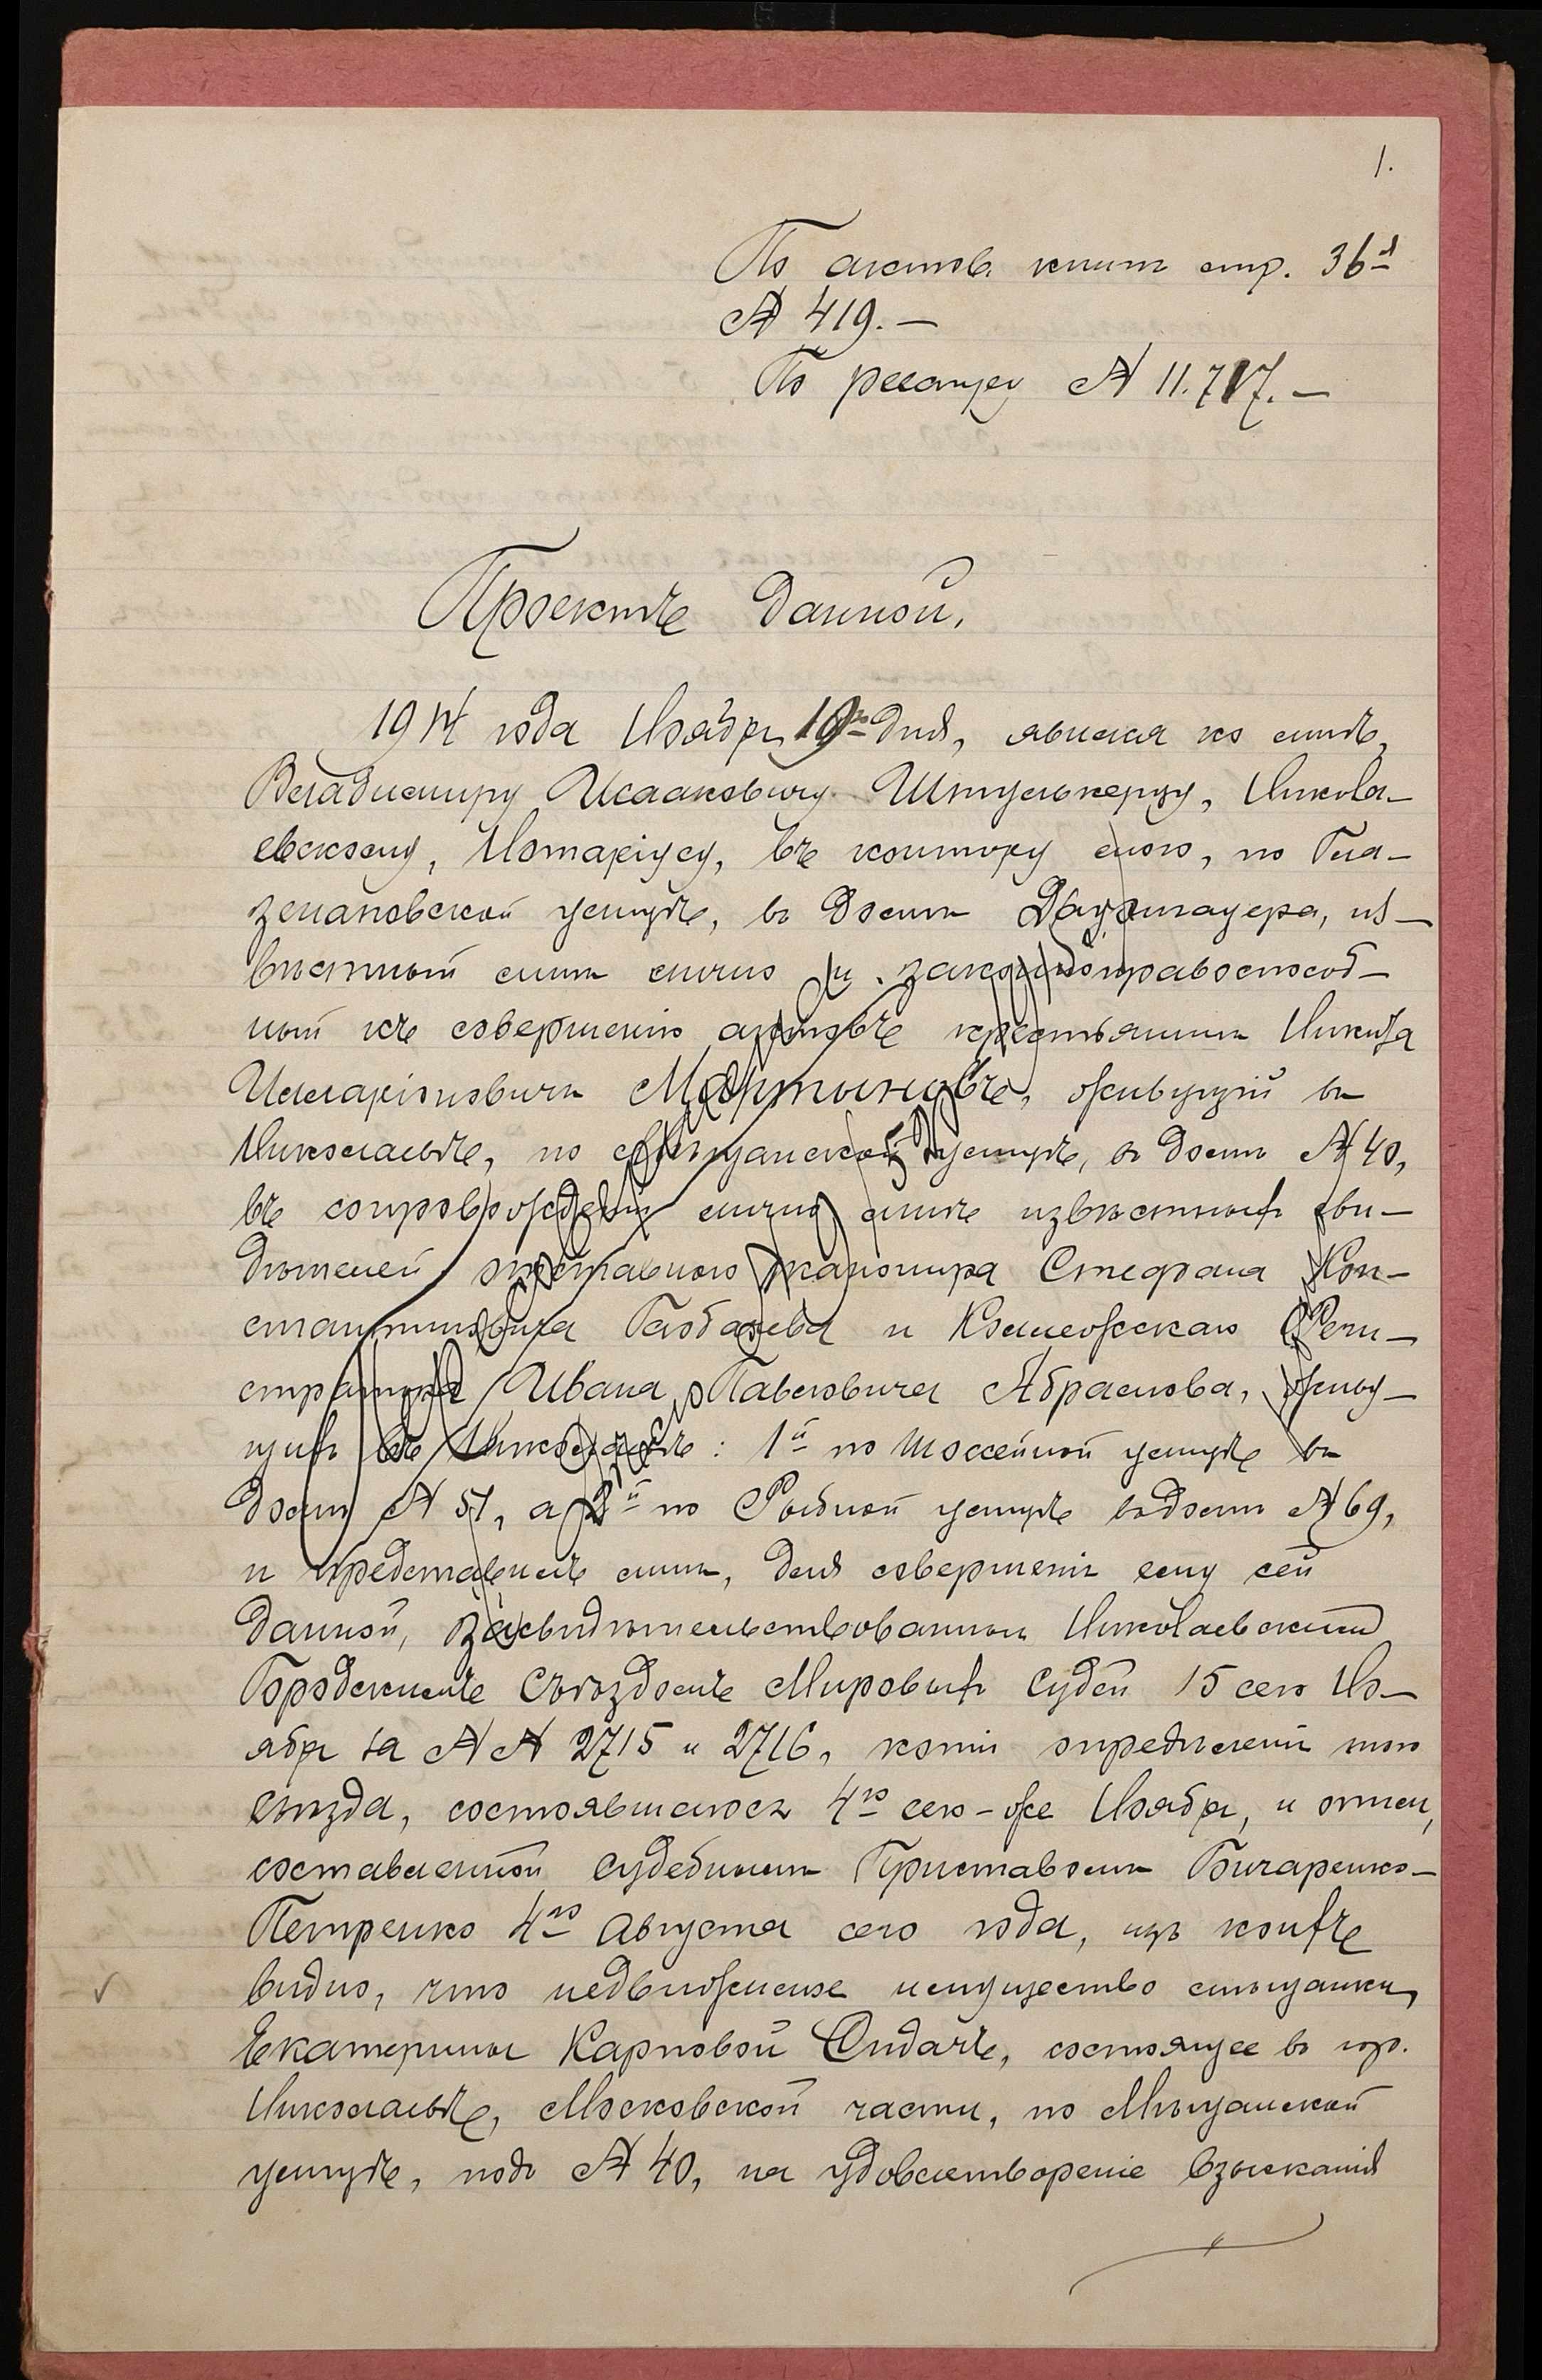 1.
По актов. книгѣ стр. 36я
№ 419.—
По реестру № 11.717.—
Проектъ данной.
1914 года Ноября 19го дня, явился ко мнѣ,
Владимиру Исааковичу Штулькерцу, Никола-
евскому, Нотаріусу, въ контору мою, по Гла-
зенаповской улицѣ, въ домѣ из-
вѣстный мнѣ лично и законноправоспособ-
ный къ совершенію актовъ крестьянинъ Никита
Илларіоновичъ Мартыновъ, живущій въ
Николаевѣ, по Мѣщанской улицѣ, въ домѣ № 40,
въ сопровожденіи лично мнѣ извѣстныхъ сви-
дѣтелей отставного канонира Стефана Кон-
стантиновича и Коллежскаго Реги-
стратора Ивана Павловича Абрамова, живу-
щихъ въ Николаевѣ: 1й по Шоссейной улицѣ въ
домѣ № 51, а 2й по Рыбной улицѣ въ домѣ № 69,
и представилъ мнѣ, для совершенія ему сей
данной, засвидѣтельствованныя Николаевскимъ
Городскимъ Съѣздомъ Мировыхъ Судей 15 сего Но-
ября за №№ 2715 и 2716, копіи опредѣленія того
съѣзда, состоявшагося 4го сего-же Ноября, и описи,
составленной Судебнымъ Приставомъ
Петренко 4го Августа сего года, изъ коихъ
видно, что недвижимое имущество мѣщанки,
Екатерины Карповой Сидачъ, состоящее въ гор.
Николаевѣ, Московской части, по Мѣщанской
улицѣ, подъ № 40, на удовлетвореніе взысканія